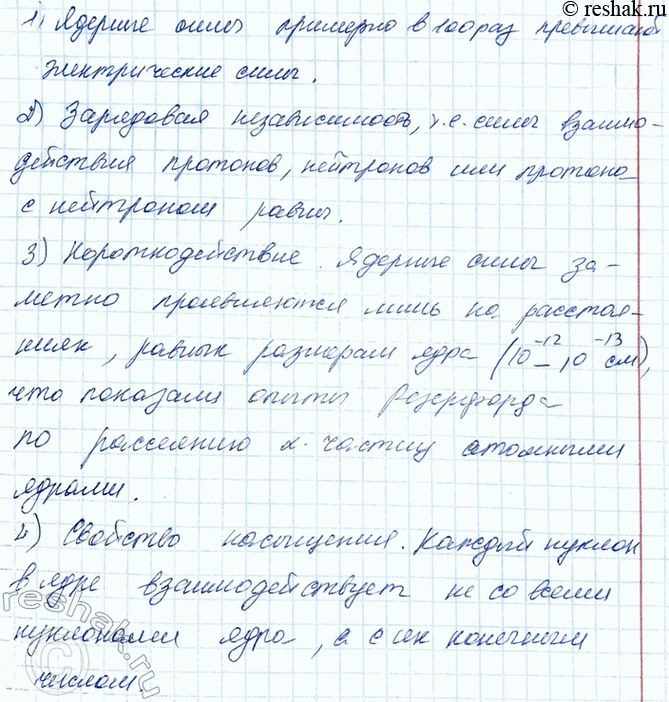 © reshak.ru
1) Ядерные силы примерно в 100 раз превышают
электрические силы.
2) Зарядовая независимость, т.е. силы взаимо-
действия протонов, нейтронов или протона
с нейтроном равны.
3) Короткодействие. Ядерные силы за-
метно проявляются лишь на расстоя-
ниях, равных размерам ядра (10⁻¹² – 10⁻¹³ см),
что показали опыты Резерфорда
по рассеянию α-частиц атомными
ядрами.
4) Свойство насыщения. Каждый нуклон
в ядре взаимодействует не со всеми
нуклонами ядра, а с их конечным
числом.
© reshak.ru